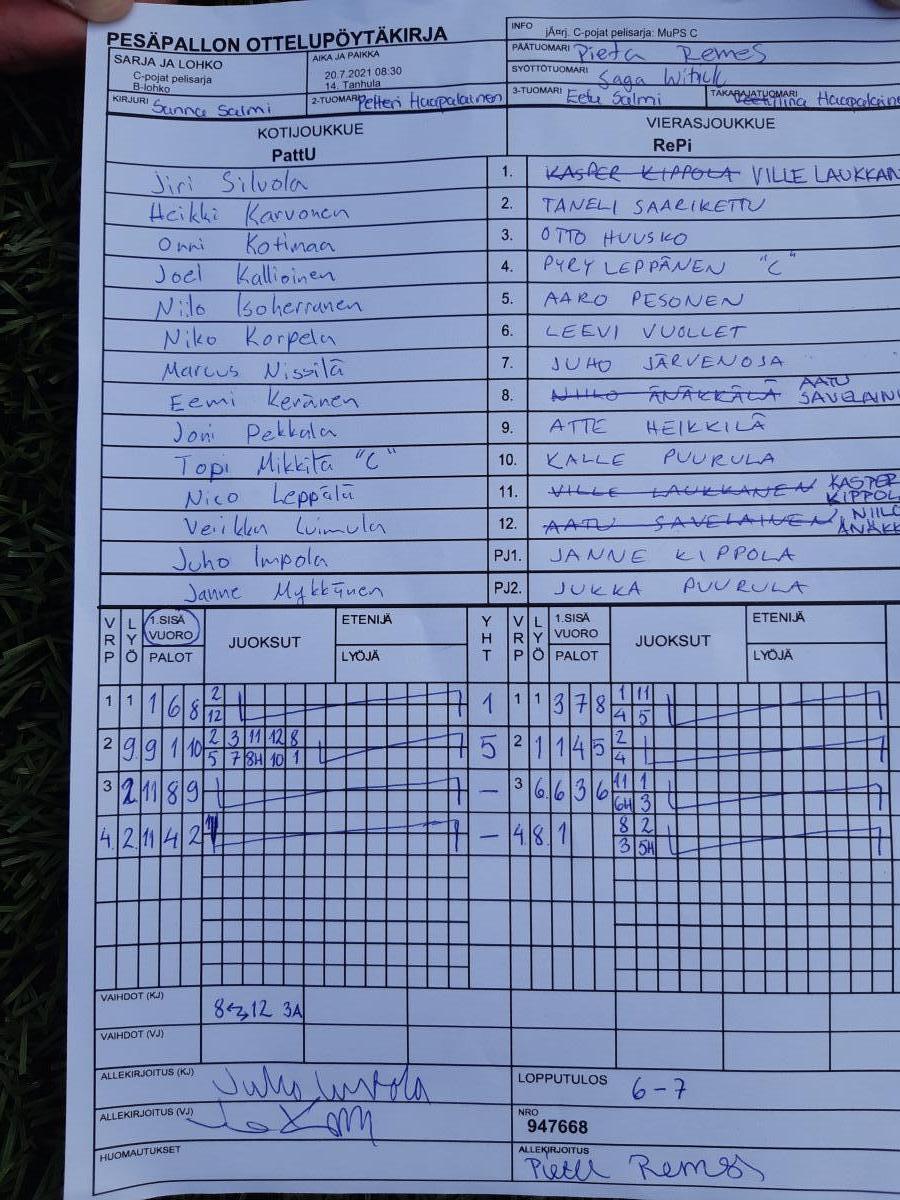 PESÄPALLON OTTELUPÖYTÄKIRJA
INFO jÄ¤rj. C-pojat pelisarja: MuPS C
SARJA JA LOHKO
C-pojat pelisarja
B-lohko
AIKA JA PAIKKA
20.7.2021 08:30
14. Tanhula
PÄÄTUOMARI Pieta Remes
SYÖTTÖTUOMARI Saga
KIRJURI Sanna Salmi
2-TUOMARI Petteri Haapalainen
3-TUOMARI Eetu Salmi
TAKARAJATUOMARI Haapalaine
KOTIJOUKKUE VIERASJOUKKUE
PattU RePi
Jiri Silvola 1. KASPER KIPPOLA VILLE LAUKKAN
Heikki Karvonen 2. TANELI SAARIKETTU
Onni Kotimaa 3. OTTO HUUSKO
Joel Kallioinen 4. PYRY LEPPÄNEN "C"
Niilo Isoherranen 5. AARO PESONEN
Niko Korpela 6. LEEVI VUOLLET
Marcus Nissilä 7. JUHO JÄRVENOJA
Eemi Keränen 8. NIILO ÄNÄKKÄLÄ AATU SAVELAIN
Joni Pekkala 9. ATTE HEIKKILÄ
Topi Mikkilä "C" 10. KALLE PUURULA
Nico Leppälä 11. VILLE LAUKKANEN KASPER KIPPOL
Veikka Luimula 12. AATU SAVELAINEN NIILO ÄNÄKK
Juho Impola PJ1. JANNE KIPPOLA
Janne Mykkänen PJ2. JUKKA PUURULA
VRP LYÖ 1.SISÄ VUORO PALOT JUOKSUT ETENIJÄ LYÖJÄ YHT VRP LYÖ 1.SISÄ VUORO PALOT JUOKSUT ETENIJÄ LYÖJÄ
2 1 11
1 1 1 6 8 12 1 1 1 3 7 8 4 5
2 3 11 12 8 2
2 9. 9 1 10 5 7 8H 10 1 5 2 1 1 4 5 4
11 1
3 2 11 8 9 – 3 6. 6 3 6 6H 3
8 2
4. 2. 11 4 2 – 4. 8. 1 3 5H
VAIHDOT (KJ) 8 12 3A
VAIHDOT (VJ)
ALLEKIRJOITUS (KJ)
LOPPUTULOS 6-7
ALLEKIRJOITUS (VJ)
NRO
947668
HUOMAUTUKSET
ALLEKIRJOITUS
Pieta Remes